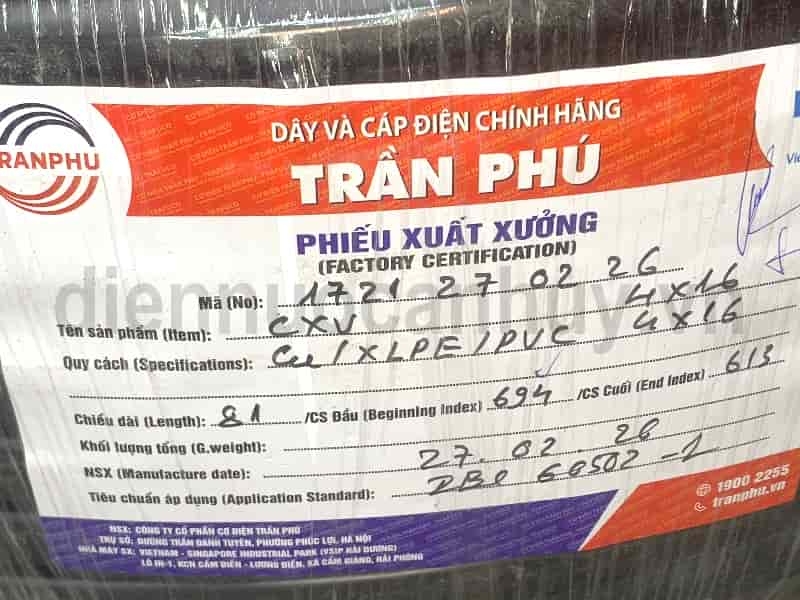 DÂY VÀ CÁP ĐIỆN CHÍNH HÃNG
RANPHU
TRẦN PHÚ
PHIẾU XUẤT XƯỞNG
(FACTORY CERTIFICATION)
Mã (No): 1721 27 02 26
Tên sản phẩm (Item): CXV 4x16
Quy cách (Specifications): Cu/XLPE/PVC 4x16
Chiều dài (Length): 81 /CS Đầu (Beginning Index) 694 /CS Cuối (End Index) 613
Khối lượng tổng (G.weight):
NSX (Manufacture date): 27.02.26
Tiêu chuẩn áp dụng (Application Standard): 60502-1
1900 2255
tranphu.vn
NSX: CÔNG TY CỔ PHẦN CƠ ĐIỆN TRẦN PHÚ
TRỤ SỞ: ĐƯỜNG TRẦN DANH TUYÊN, PHƯỜNG PHÚC LỢI, HÀ NỘI
NHÀ MÁY SX: VIETNAM - SINGAPORE INDUSTRIAL PARK (VSIP HẢI DƯƠNG)
LÔ IN-1, KCN CẨM ĐIỀN - LƯƠNG ĐIỀN, XÃ CẨM GIÀNG, HẢI PHÒNG